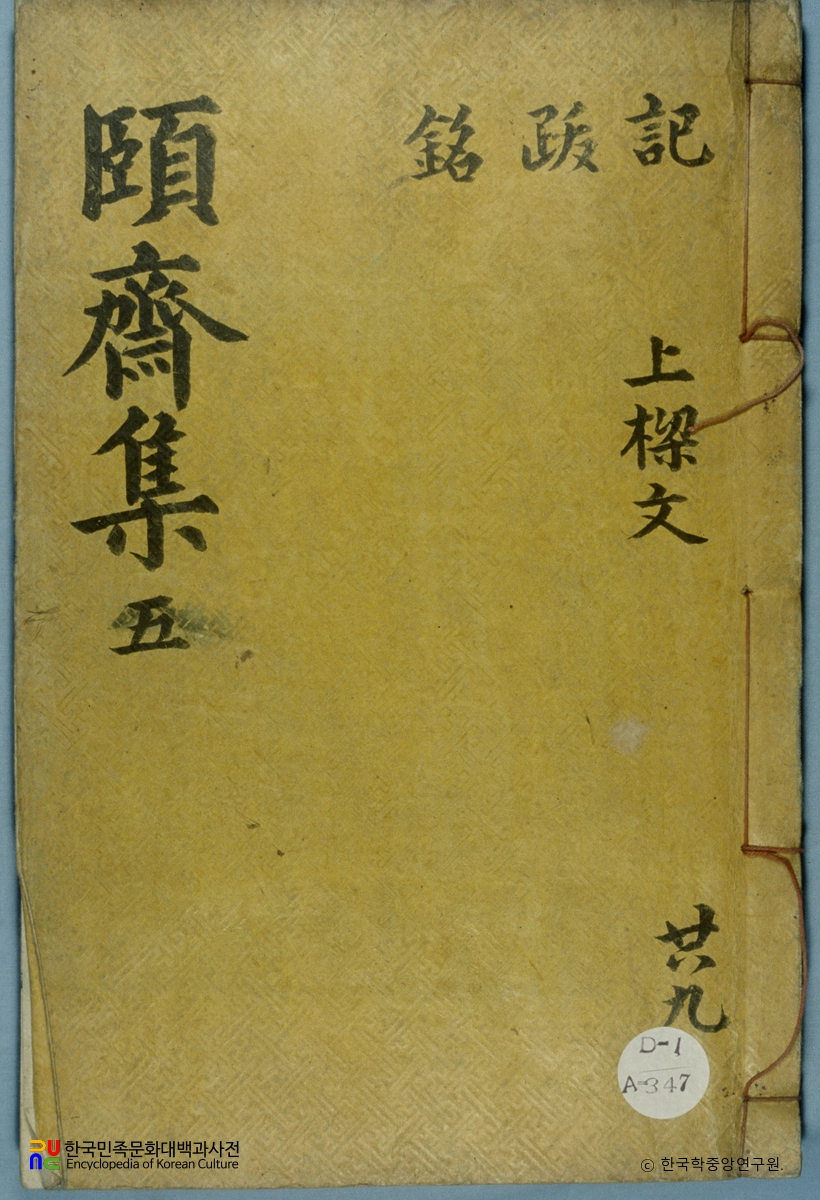 記
跋
銘
上樑文
共九
頤齋集 五
D-1
A-347
한국민족문화대백과사전
Encyclopedia of Korean Culture
ⓒ 한국학중앙연구원.